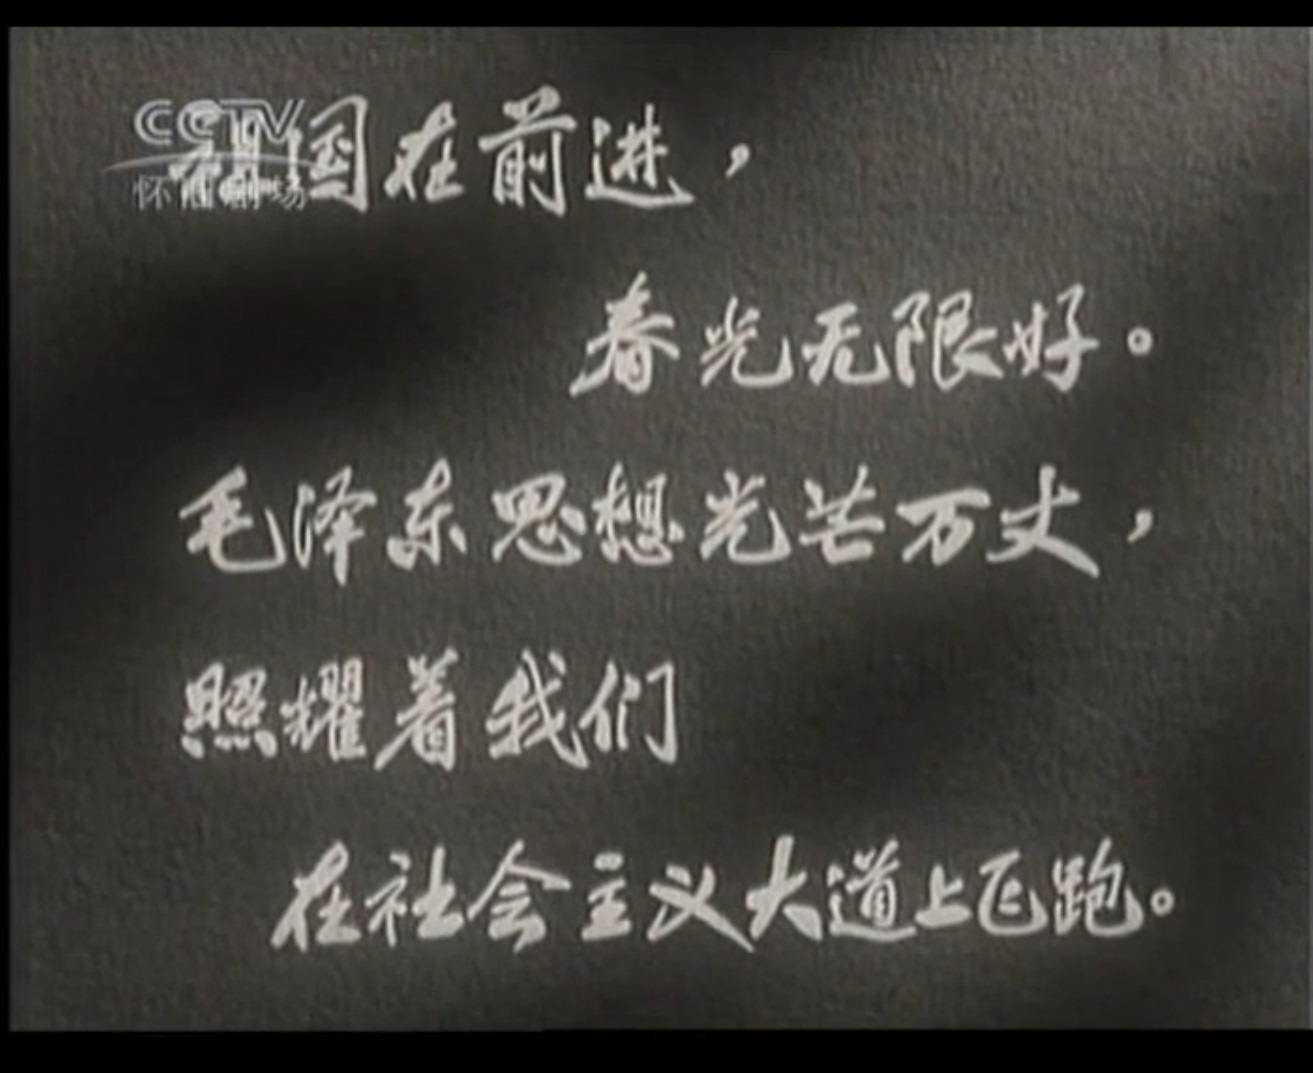 CCTV
怀旧剧场
祖国在前进，
春光无限好。
毛泽东思想光芒万丈，
照耀着我们
在社会主义大道上飞跑。